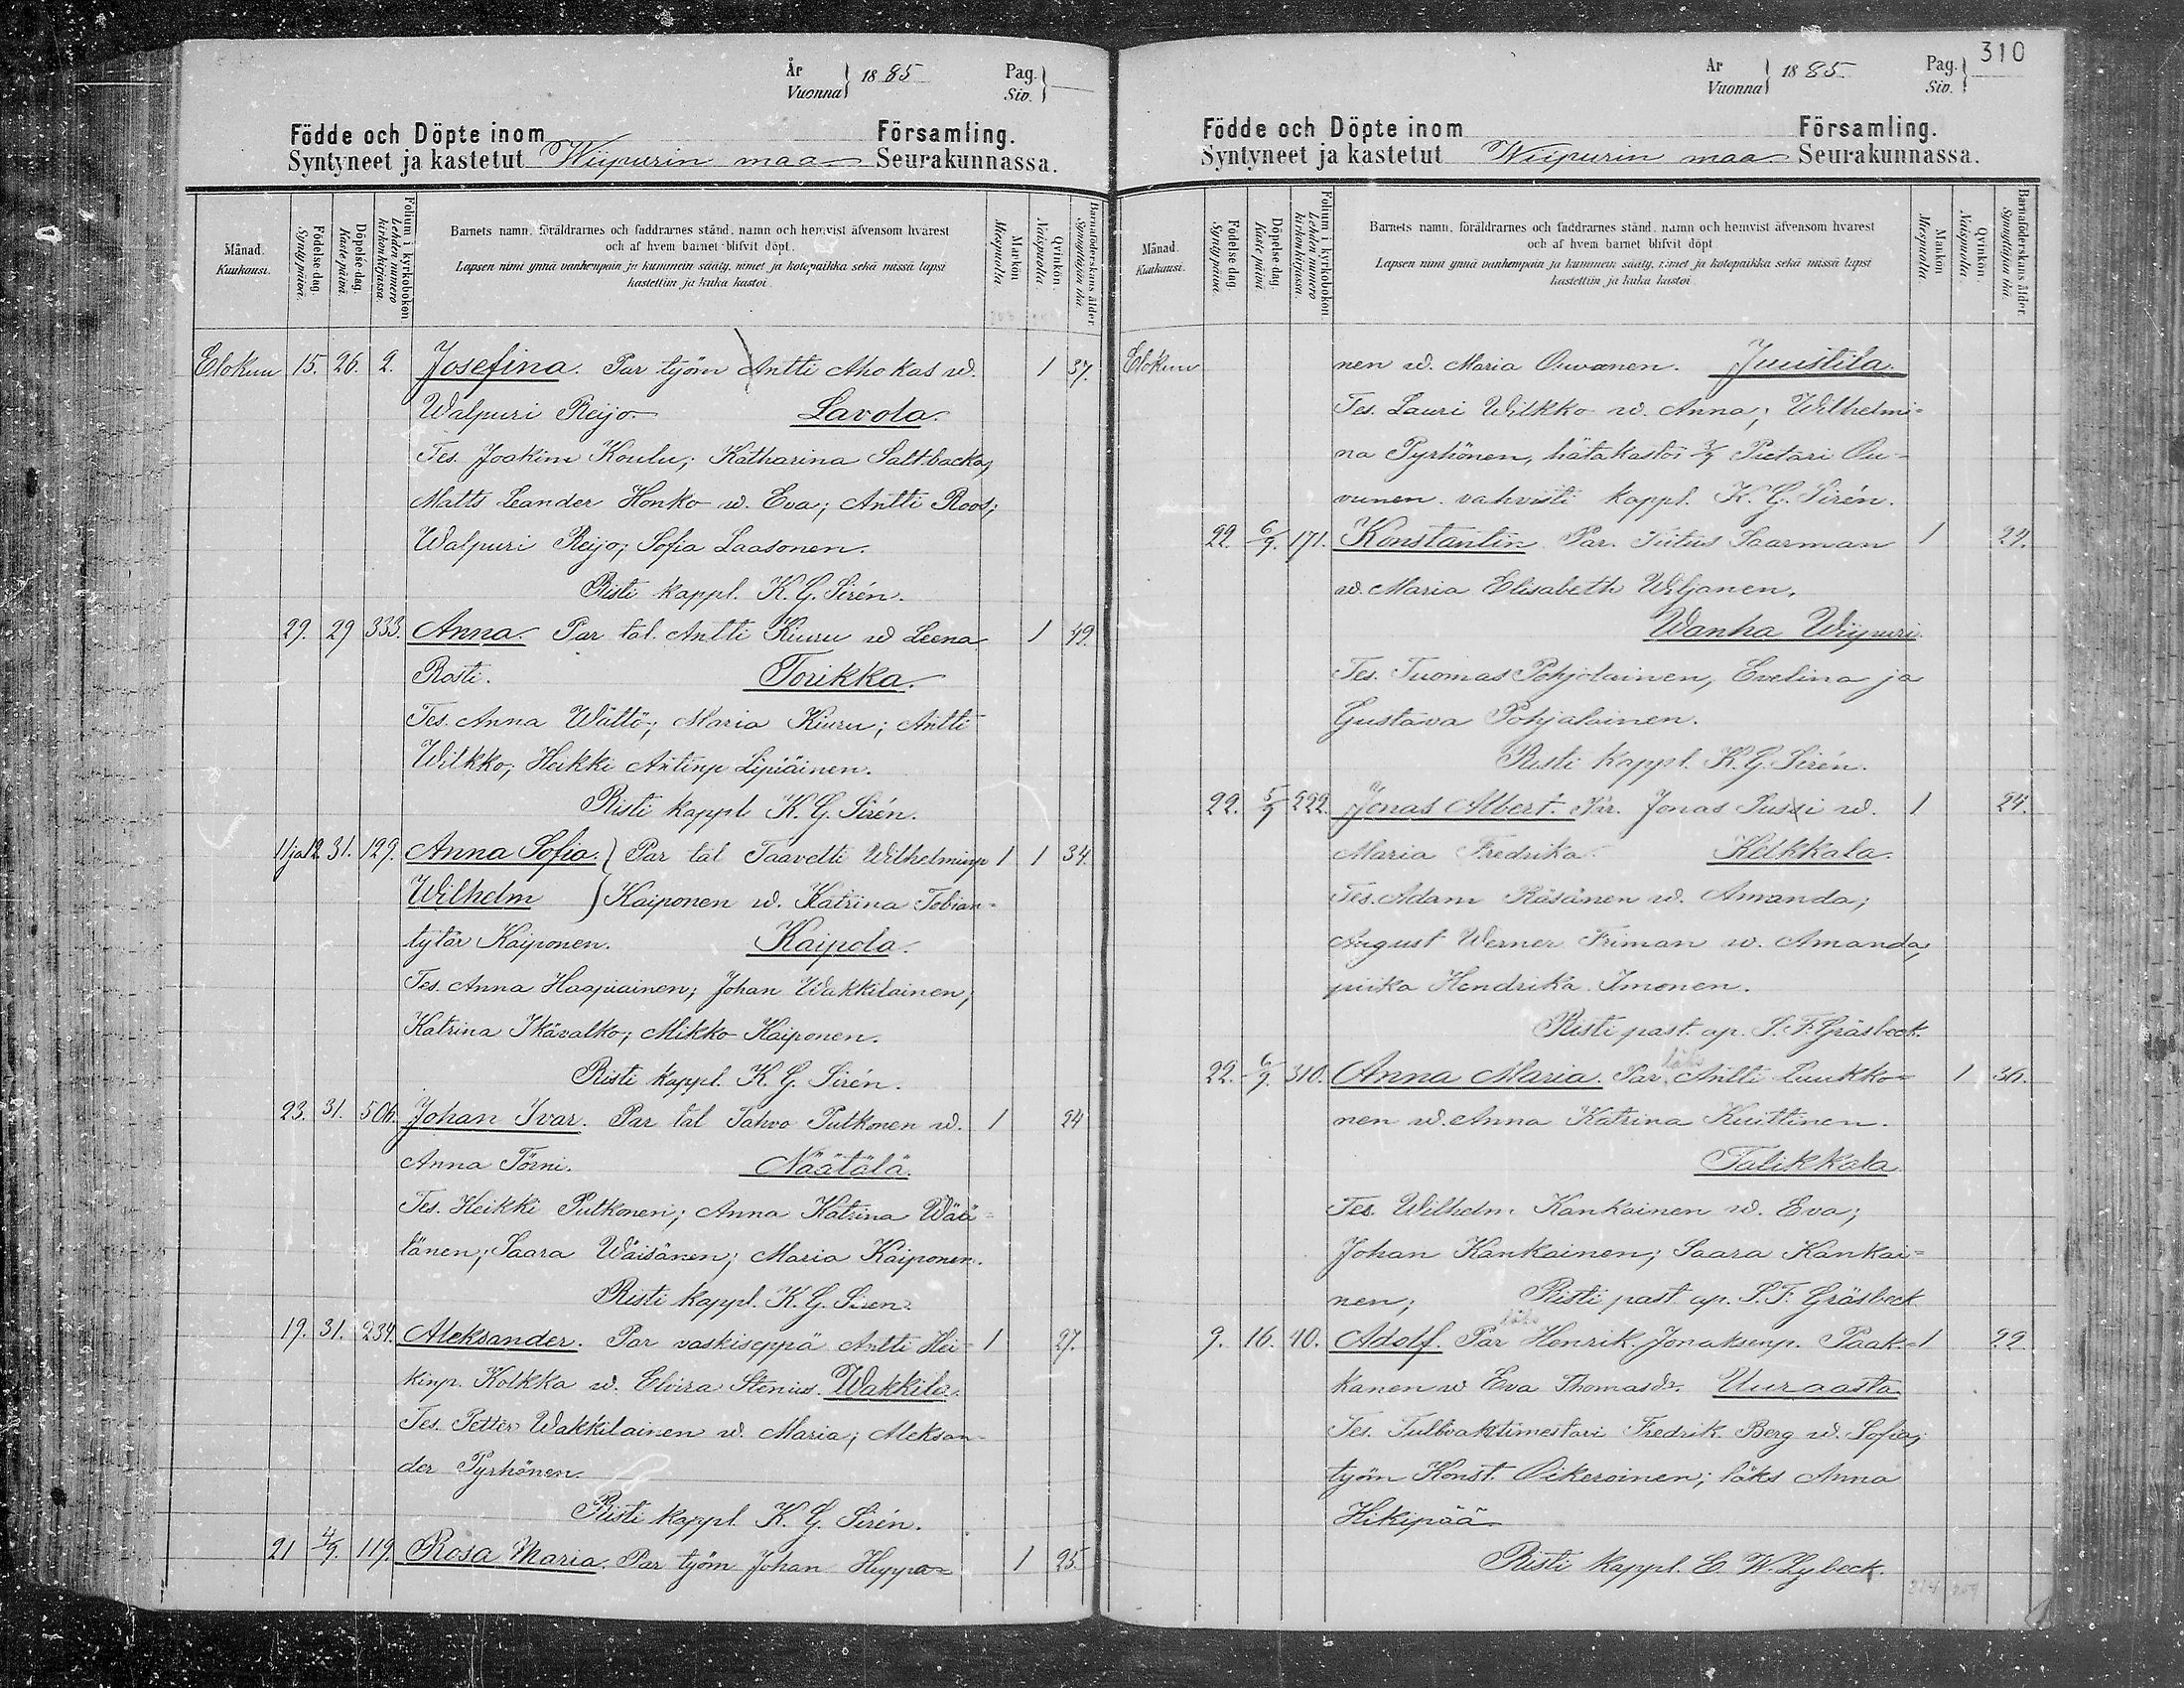 År
Vuonna } 1885
Pag.
Siv. }
Födde och Döpte inom Församling.
Syntyneet ja kastetut Wiipurin maa Seurakunnassa.
Månad.
Kuukausi.
Födelse dag.
Synty päivä.
Döpelse dag.
Kaste päivä.
Folium i kyrkoboken.
Lehden numero kirkonkirjassa.
Barnets namn, föräldrarnes och faddrarnes stånd, namn och hemvist äfvensom hvarest
och af hvem barnet blifvit döpt.
Lapsen nimi ynnä vanhempain ja kummein sääty, nimet ja kotopaikka sekä missä lapsi
kastettiin ja kuka kastoi.
Mankön
Miespuolia.
Qvinkön.
Naispuolia.
Barnaföderskans ålder
Synnyttäjän ikä.
Elokuu 15. 26. 2. Josefina. Par työm Antti Ahokas w. 1 37.
Walpuri Reijo. Lavola.
Tes. Joakim Koulu; Katharina Saltbacka;
Matts Leander Honko w. Eva; Antti Roos;
Walpuri Reijo; Sofia Laasonen.
Risti kappl. K. G. Sirén.
29. 29 333. Anna. Par tal. Antti Kiuru w Leena 1 42.
Rosti. Torikka.
Tes. Anna Wättö; Maria Kiuru; Antti
Wilkko; Heikki Antinp Lipiäinen.
Risti kappl. K. G. Sirén.
11 ja 12 31. 129. Anna Sofia. } Par tal Taavetti Wilhelminp 1 1 34.
Wilhelm } Kaiponen w. Katrina Tobian-
tytär Kaiponen. Kaipola.
Tes. Anna Haapiainen; Johan Wakkilainen;
Katrina Ikävalko; Mikko Kaiponen.
Risti kappl. K. G. Sirén.
23. 31. 506. Johan Ivar. Par tal Tahvo Putkonen w. 1 24
Anna Törni. Näätälä.
Tes. Heikki Putkonen; Anna Katrina Wää-
länen; Saara Wäisänen; Maria Kaiponen.
Risti kappl. K. G. Siren.
19. 31. 234. Aleksander. Par vaskiseppä Antti Hei- 1 27.
kinp. Kolkka w. Elvira Stenius. Wakkila.
Tes. Petter Wakkilainen w. Maria; Aleksan-
der Pyrhönen.
Risti kappl. K. G. Sirén.
21 4/9. 119. Rosa Maria. Par työm Johan Hyppö- 1 25.
310
År
Vuonna } 1885.
Pag.
Siv. }
Födde och Döpte inom Församling.
Syntyneet ja kastetut Wiipurin maa Seurakunnassa.
Månad.
Kuukausi.
Födelse dag.
Synty päivä.
Döpelse dag.
Kaste päivä.
Folium i kyrkoboken.
Lehden numero kirkonkirjassa.
Barnets namn, föräldrarnes och faddrarnes stånd, namn och hemvist äfvensom hvarest
och af hvem barnet blifvit döpt
Lapsen nimi ynnä vanhempain ja kummein sääty, nimet ja kotopaikka sekä missä lapsi
kastettiin ja kuka kastoi
Mankön
Miespuolia.
Qvinkön.
Naispuolia.
Barnaföderskans ålder
Synnyttäjän ikä.
Elokuu nen w. Maria Ouvonen. Juustila.
Tes. Lauri Wilkko w. Anna; Wilhelmi-
na Pyrhönen, hätäkastoi Pietari Ou-
vunen. vahvisti kappl. K. G. Sirén.
22. 6/9. 171. Konstantin Par. Titus Saarman 1 29.
w. Maria Elisabeth Wiljanen.
Wanha Wiipuri
Tes. Tuomas Pohjolainen, Evelina ja
Gustava Pohjalainen.
Risti kappl. K. G. Sirén.
22. 5/9 222. Jonas Albert. Par. Jonas Sussi w. 1 24.
Maria Fredrika. Kelkkala.
Tes. Adam Räsänen w. Amanda;
August Werner Friman w. Amanda,
piika Hendrika Imonen.
Risti past. ap. S. F. Gräsbeck.
22. 6/9. 310. Anna Maria. Par. läks Antti Luukko- 1 36.
nen w. Anna Katrina Kuittinen.
Talikkala
Tes. Wilhelm Kankainen w. Eva;
Johan Kankainen; Saara Kankai-
nen; Risti past. ap. S. F. Gräsbeck
9. 16. 40. Adolf. Par läks Henrik. Jonaksenp. Paak- 1 22
kanen w Eva Thomasdr. Uuraasta.
Tes. Tullvahtimestari Fredrik Berg w. Sofia;
työm Konst. Oikeroinen; läks Anna
Hikipää
Risti kappl. E. W. Lybeck.